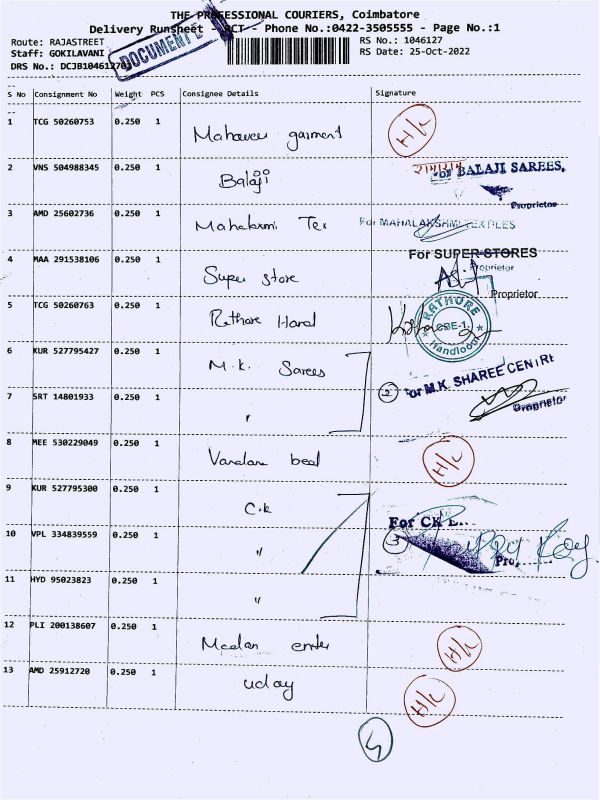 THE PROFESSIONAL COURIERS, Coimbatore
Delivery Runsheet - RCT - Phone No.:0422-3505555 - Page No.:1
Route: RAJASTREET
RS No.: 1046127
Staff: GOKILAVANI
RS Date: 25-Oct-2022
DRS No.: DCJB1046127
DOCUMENT
S No Consignment No Weight PCS Consignee Details Signature
1 TCG 50260753 0.250 1 garment H/L
2 VNS 504988345 0.250 1 Balaji For BALAJI SAREES.
Proprietor
3 AMD 25602736 0.250 1 Mahalaxmi Tex For MAHALAKSHMI TEXTILES
4 MAA 291538106 0.250 1 Super store For SUPER STORES
Proprietor
5 TCG 50260763 0.250 1 Rathore Hand RATHORE CBE-1. Handloom
Proprietor
6 KUR 527795427 0.250 1 M.K. Sarees
7 SRT 14801933 0.250 1 " 2 For M.K. SHAREE CENTRE
Proprietor
8 MEE 530229049 0.250 1 H/L
9 KUR 527795300 0.250 1 C.K
10 VPL 334839559 0.250 1 " 3 For CK
11 HYD 95023823 0.250 1 "
12 PLI 200138607 0.250 1 H/L
13 AMD 25912720 0.250 1 uday H/L